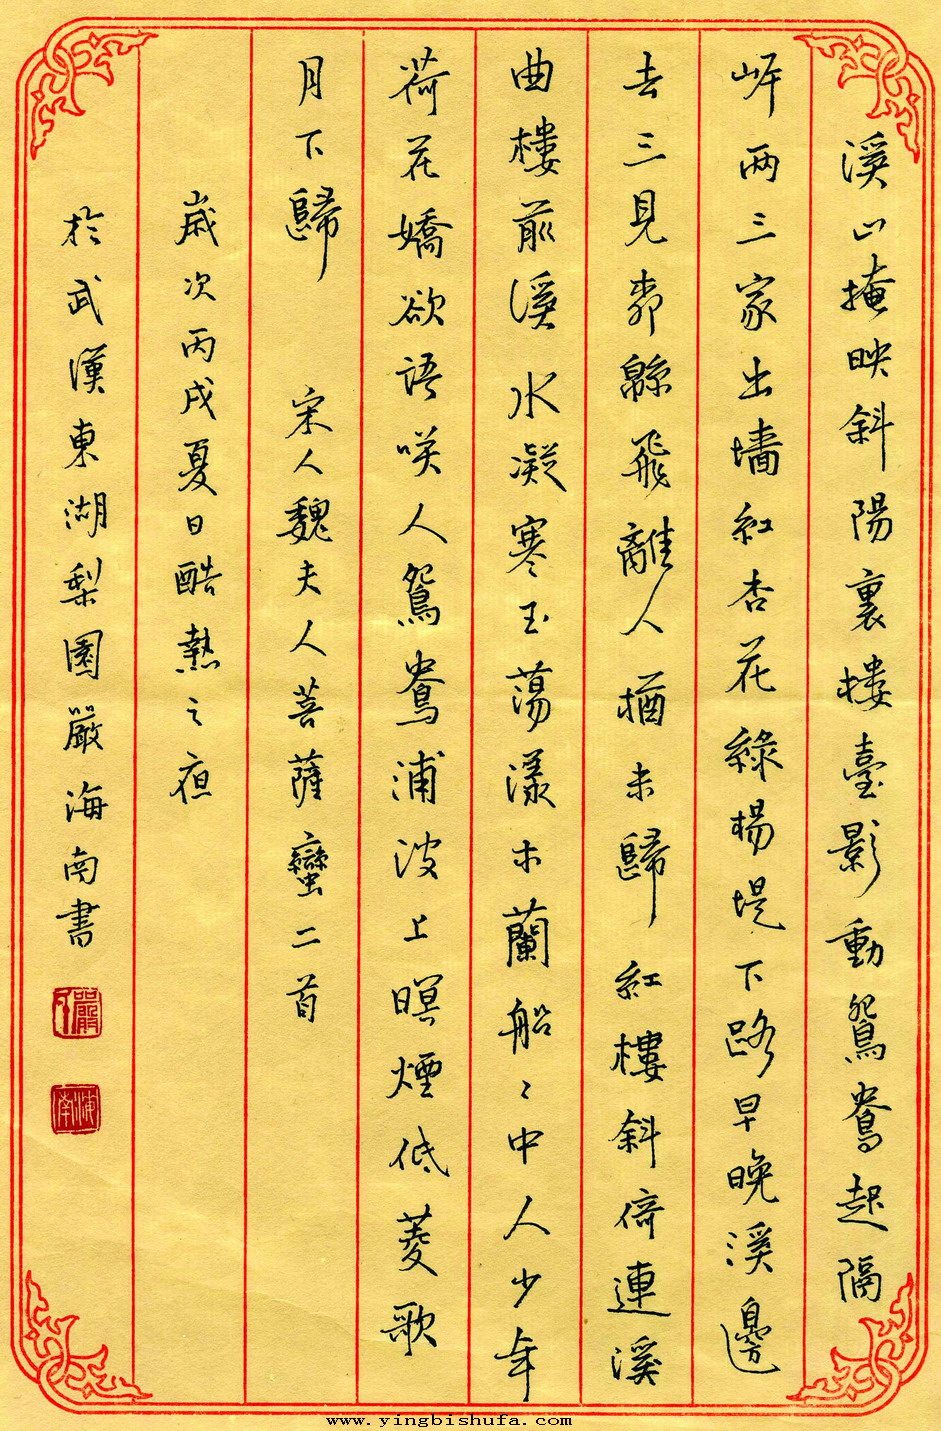 溪山掩映斜陽裏樓臺影動鴛鴦起隔
岸两三家出墙紅杏花綠楊堤下路早晚溪邊
去三見柳緜飛離人猶未歸紅樓斜倚連溪
曲樓前溪水凝寒玉蕩漾木蘭船〻中人少年
荷花嬌欲語咲人鴛鴦浦波上暝煙低菱歌
月下歸 宋人魏夫人菩薩蠻二首
歲次丙戌夏日酷熱之夜
於武漢東湖梨園嚴海南書
嚴
海南
www.yingbishufa.com